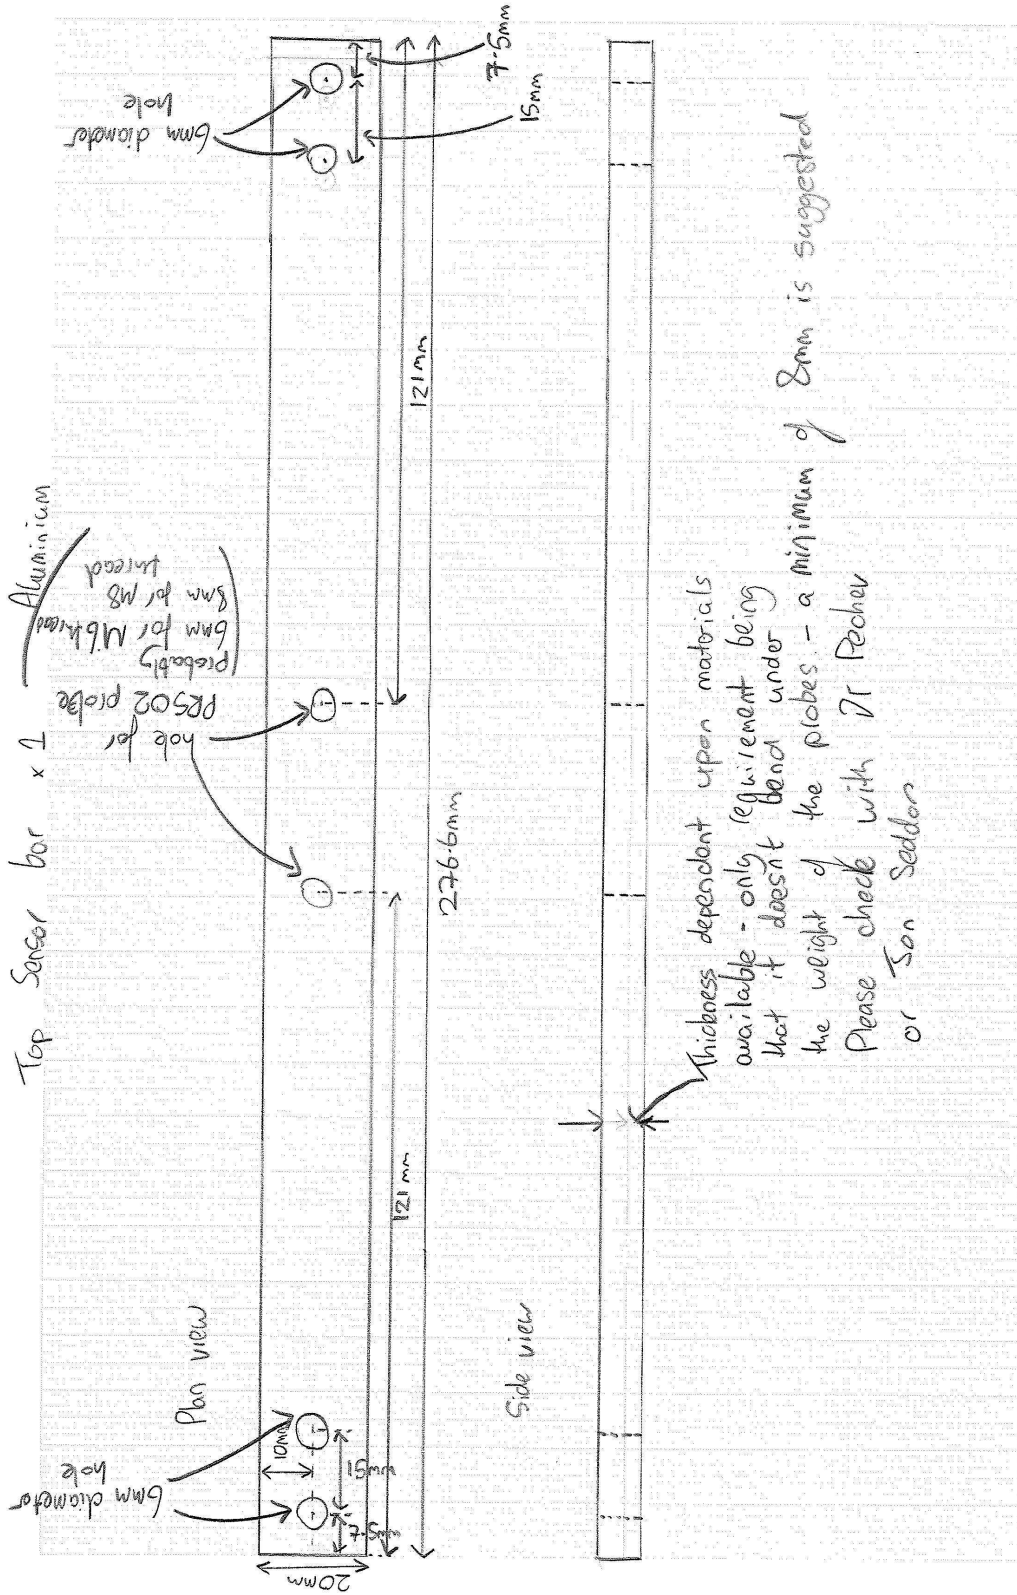 Top Sensor bar x 1 Aluminium
Plan view
6mm diameter
hole
hole for
PRS02 probe
(probably
6mm for M6 thread
8mm for M8
thread)
6mm diameter
hole
20mm
10mm
7.5mm
15mm
121mm
276.6mm
121mm
15mm
7.5mm
Side view
Thickness dependant upon materials
available - only requirement being
that it doesn't bend under
the weight of the probes. - a minimum of 8mm is suggested
Please check with Dr Pecher
or Jon Seddon